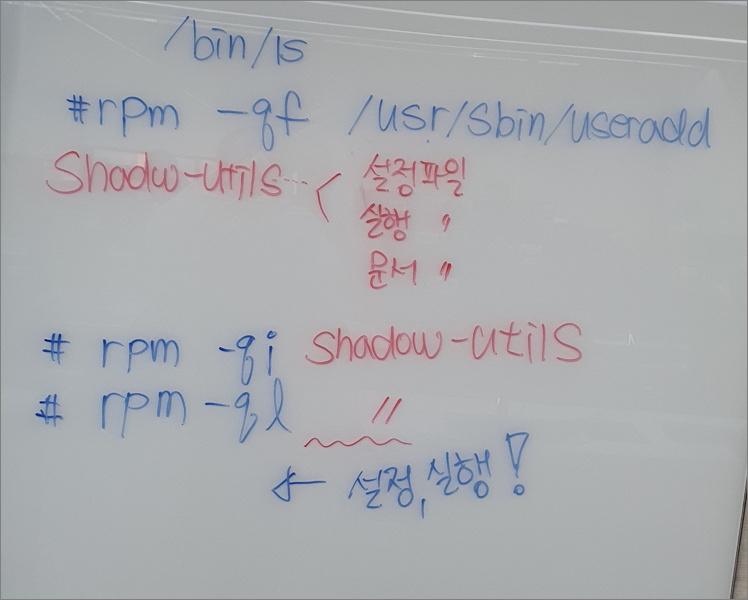 /bin/ls
#rpm -qf /usr/sbin/useradd
Shadw-utils... < 설정파일
실행 〃
문서 〃
# rpm -qi Shadow-utils
# rpm -ql 〃
← 설정, 실행!